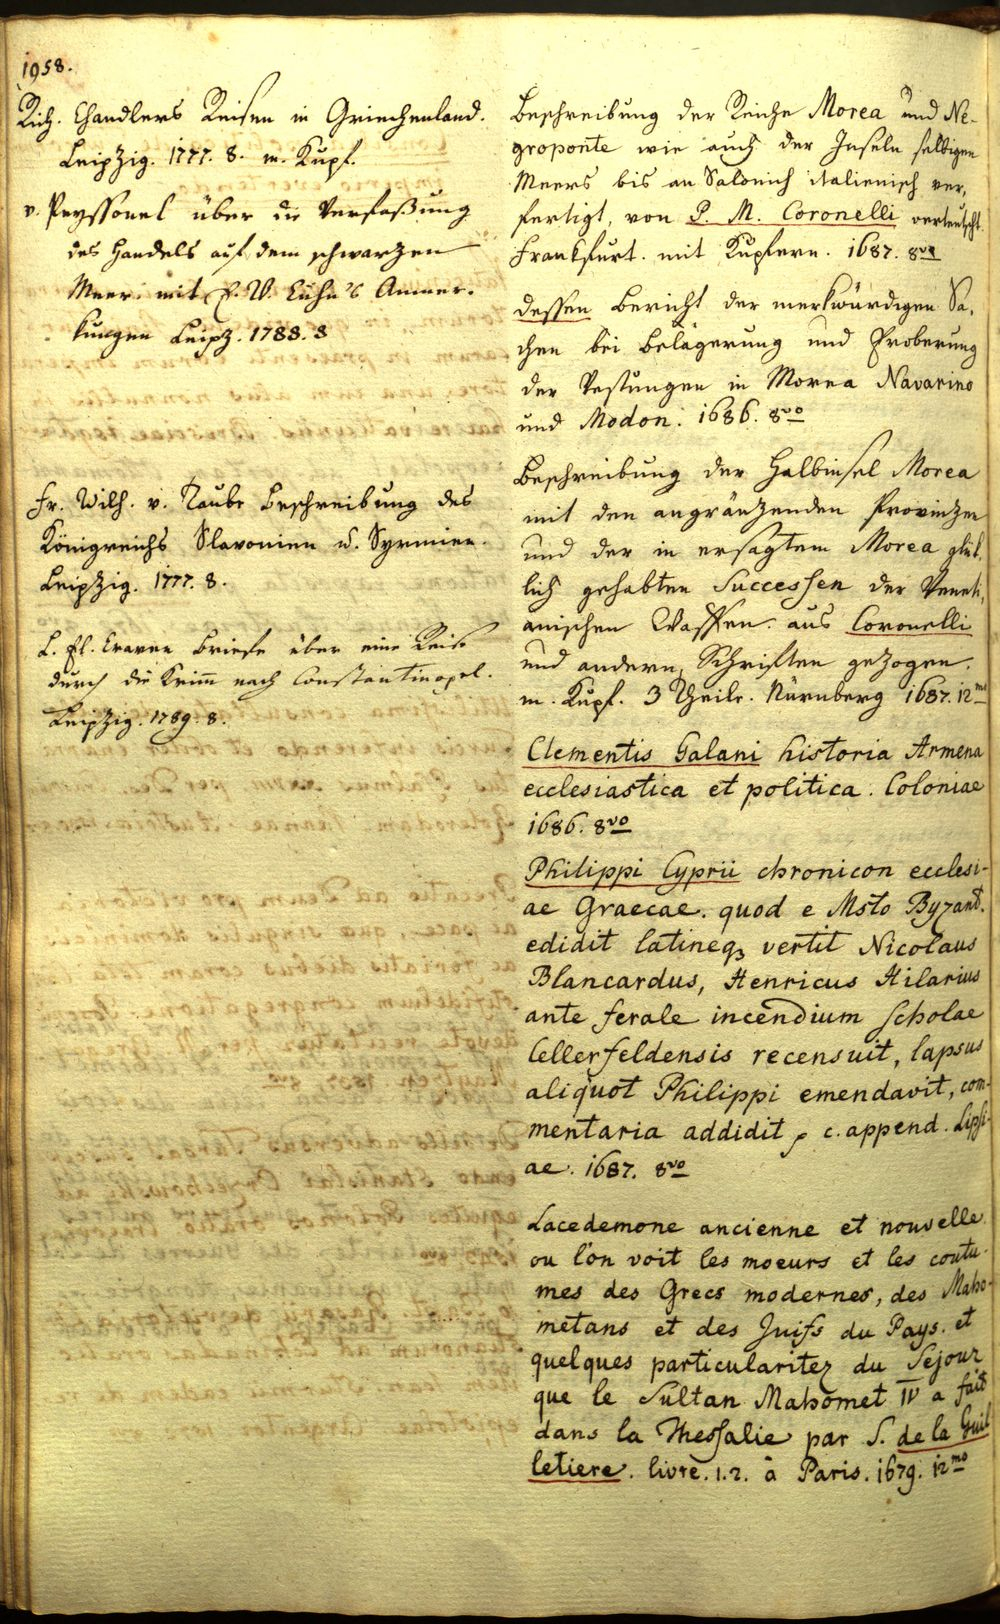 1958.
Rich. Chandlers Reisen in Griechenland.
Leipzig. 1777. 8. m. Kupf.
v. Peyssonel über die Verfaßung
des Handels auf dem schwarzen
Meer. mit E. W. Cuhn's Anmer-
kungen Leipz. 1788. 8
Fr. Wilh. v. Taube Beschreibung des
Königreichs Slavonien u. Syrmien.
Leipzig. 1777. 8.
L. El. Craven Briefe über eine Reise
durch die Krimm nach Constantinopel.
Leipzig. 1789. 8.
Beschreibung der Reiche Morea und Ne-
groponte wie auch der Inseln selbigen
Meers bis an Salonich italienisch ver-
fertigt, von P. M. Coronelli verteutscht.
Frankfurt. mit Kupfern. 1687. 8vo
dessen Bericht der merkwürdigen Sa-
chen bei Belägerung und Eroberung
der Vestungen in Morea Navarino
und Modon. 1686. 8vo
Beschreibung der Halbinsel Morea
mit den angränzenden Provinzen
und der in ersagtem Morea glük-
lich gehabten Successen der Veneti-
anischen Waffen. aus Coronelli
und andern Schriften gezogen.
m. Kupf. 3 Theile. Nürnberg 1687. 12mo
Clementis Galani historia Armena
ecclesiastica et politica. Coloniae
1686. 8vo
Philippi Cyprii chronicon ecclesi-
ae Graecae. quod e Msto Byzant.
edidit latineq; vertit Nicolaus
Blancardus, Henricus Hilarius
ante ferale incendium scholae
Cellerfeldensis recensuit, lapsus
aliquot Philippi emendavit, com-
mentaria addidit, c. append. Lipsi-
ae. 1687. 8vo
Lacedemone ancienne et nouvelle.
ou l'on voit les moeurs et les coutu-
mes des Grecs modernes, des Maho-
metans et des Juifs du Pays. et
quelques particularitez du Sejour
que le Sultan Mahomet IV a fait
dans la Thessalie par S. de la Guil
letiere. livre. 1. 2. à Paris. 1679. 12mo